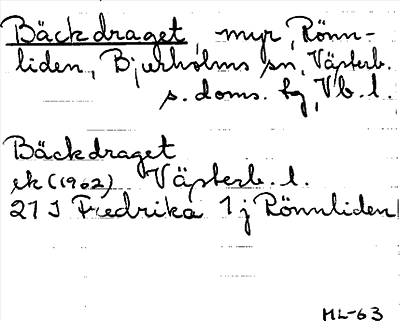 Bäckdraget, myr, Rönn-
liden, Bjurholms sn, Västerb.
s. doms. hg, Vb. l.
Bäckdraget
ek (1902) Västerb. l.
21 J Fredrika 1 j Rönnliden
ML-63